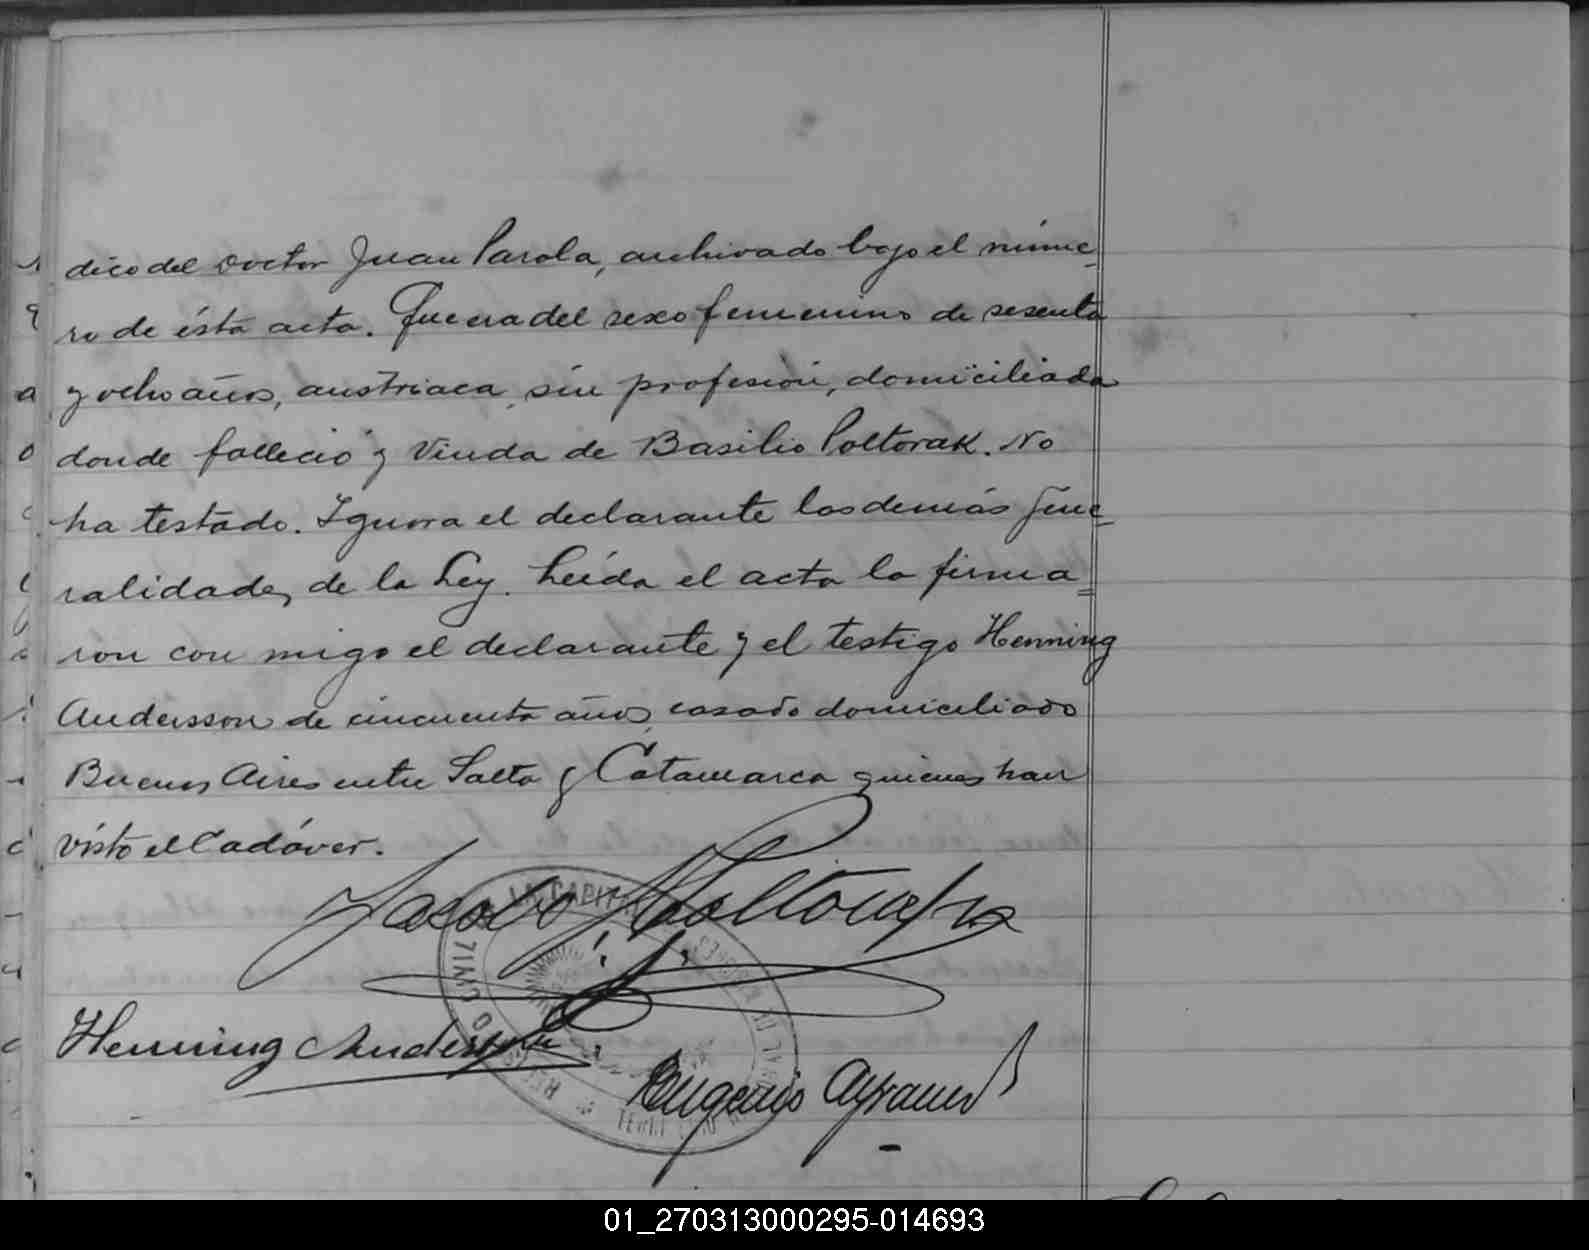 dico del Doctor Juan Parola, archivado bajo el núme
ro de ésta acta. Que era del sexo femenino de sesenta
y ocho años, austriaca, sin profesión, domiciliada
donde falleció y Viuda de Basilio Poltorak. No
ha testado. Ignora el declarante las demás gene
ralidades de la Ley. Leída el acta la firma
ron con migo el declarante y el testigo Henning
Andersson de cincuenta años, casado domiciliado
Buenos Aires entre Salta y Catamarca quienes han
visto el Cadáver.
Jacobo Poltorak
Henning Andersson
Eugenio
LA CAPITAL
O CIVIL
01_270313000295-014693